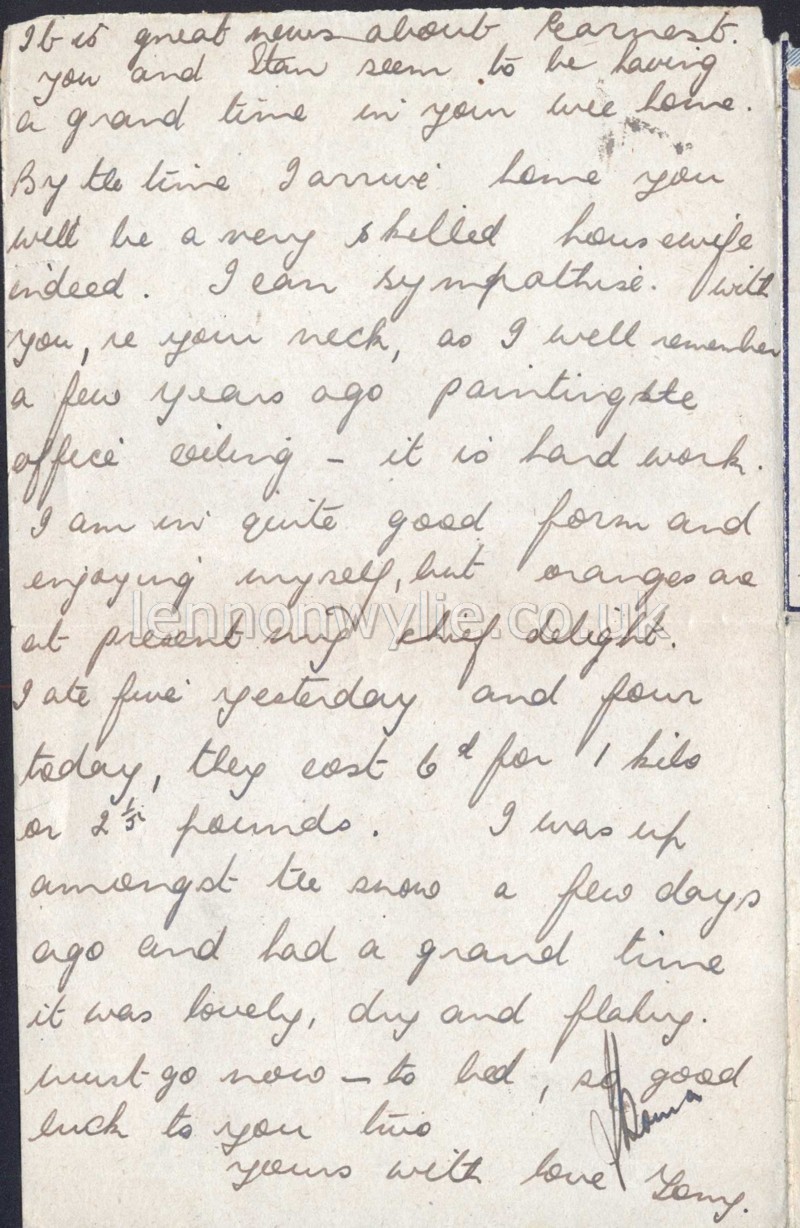 It is great news about Earnest.
you and Stan seem to be having
a grand time in your wee home.
By the time I arrive home you
will be a very skilled housewife
indeed. I can sympathise. with
you, re your neck, as I well remember
a few years ago painting the
office ceiling - it is hard work.
I am in quite good form and
enjoying myself, but oranges are
at present my chief delight.
lennonwylie.co.uk
I ate five yesterday and four
today, they cost 6d for 1 kilo
or 2 1/5 pounds. I was up
amongst the snow a few days
ago and had a grand time
it was lovely, dry and flaky.
must go now - to bed, so good
luck to you two
yours with love Tomy.